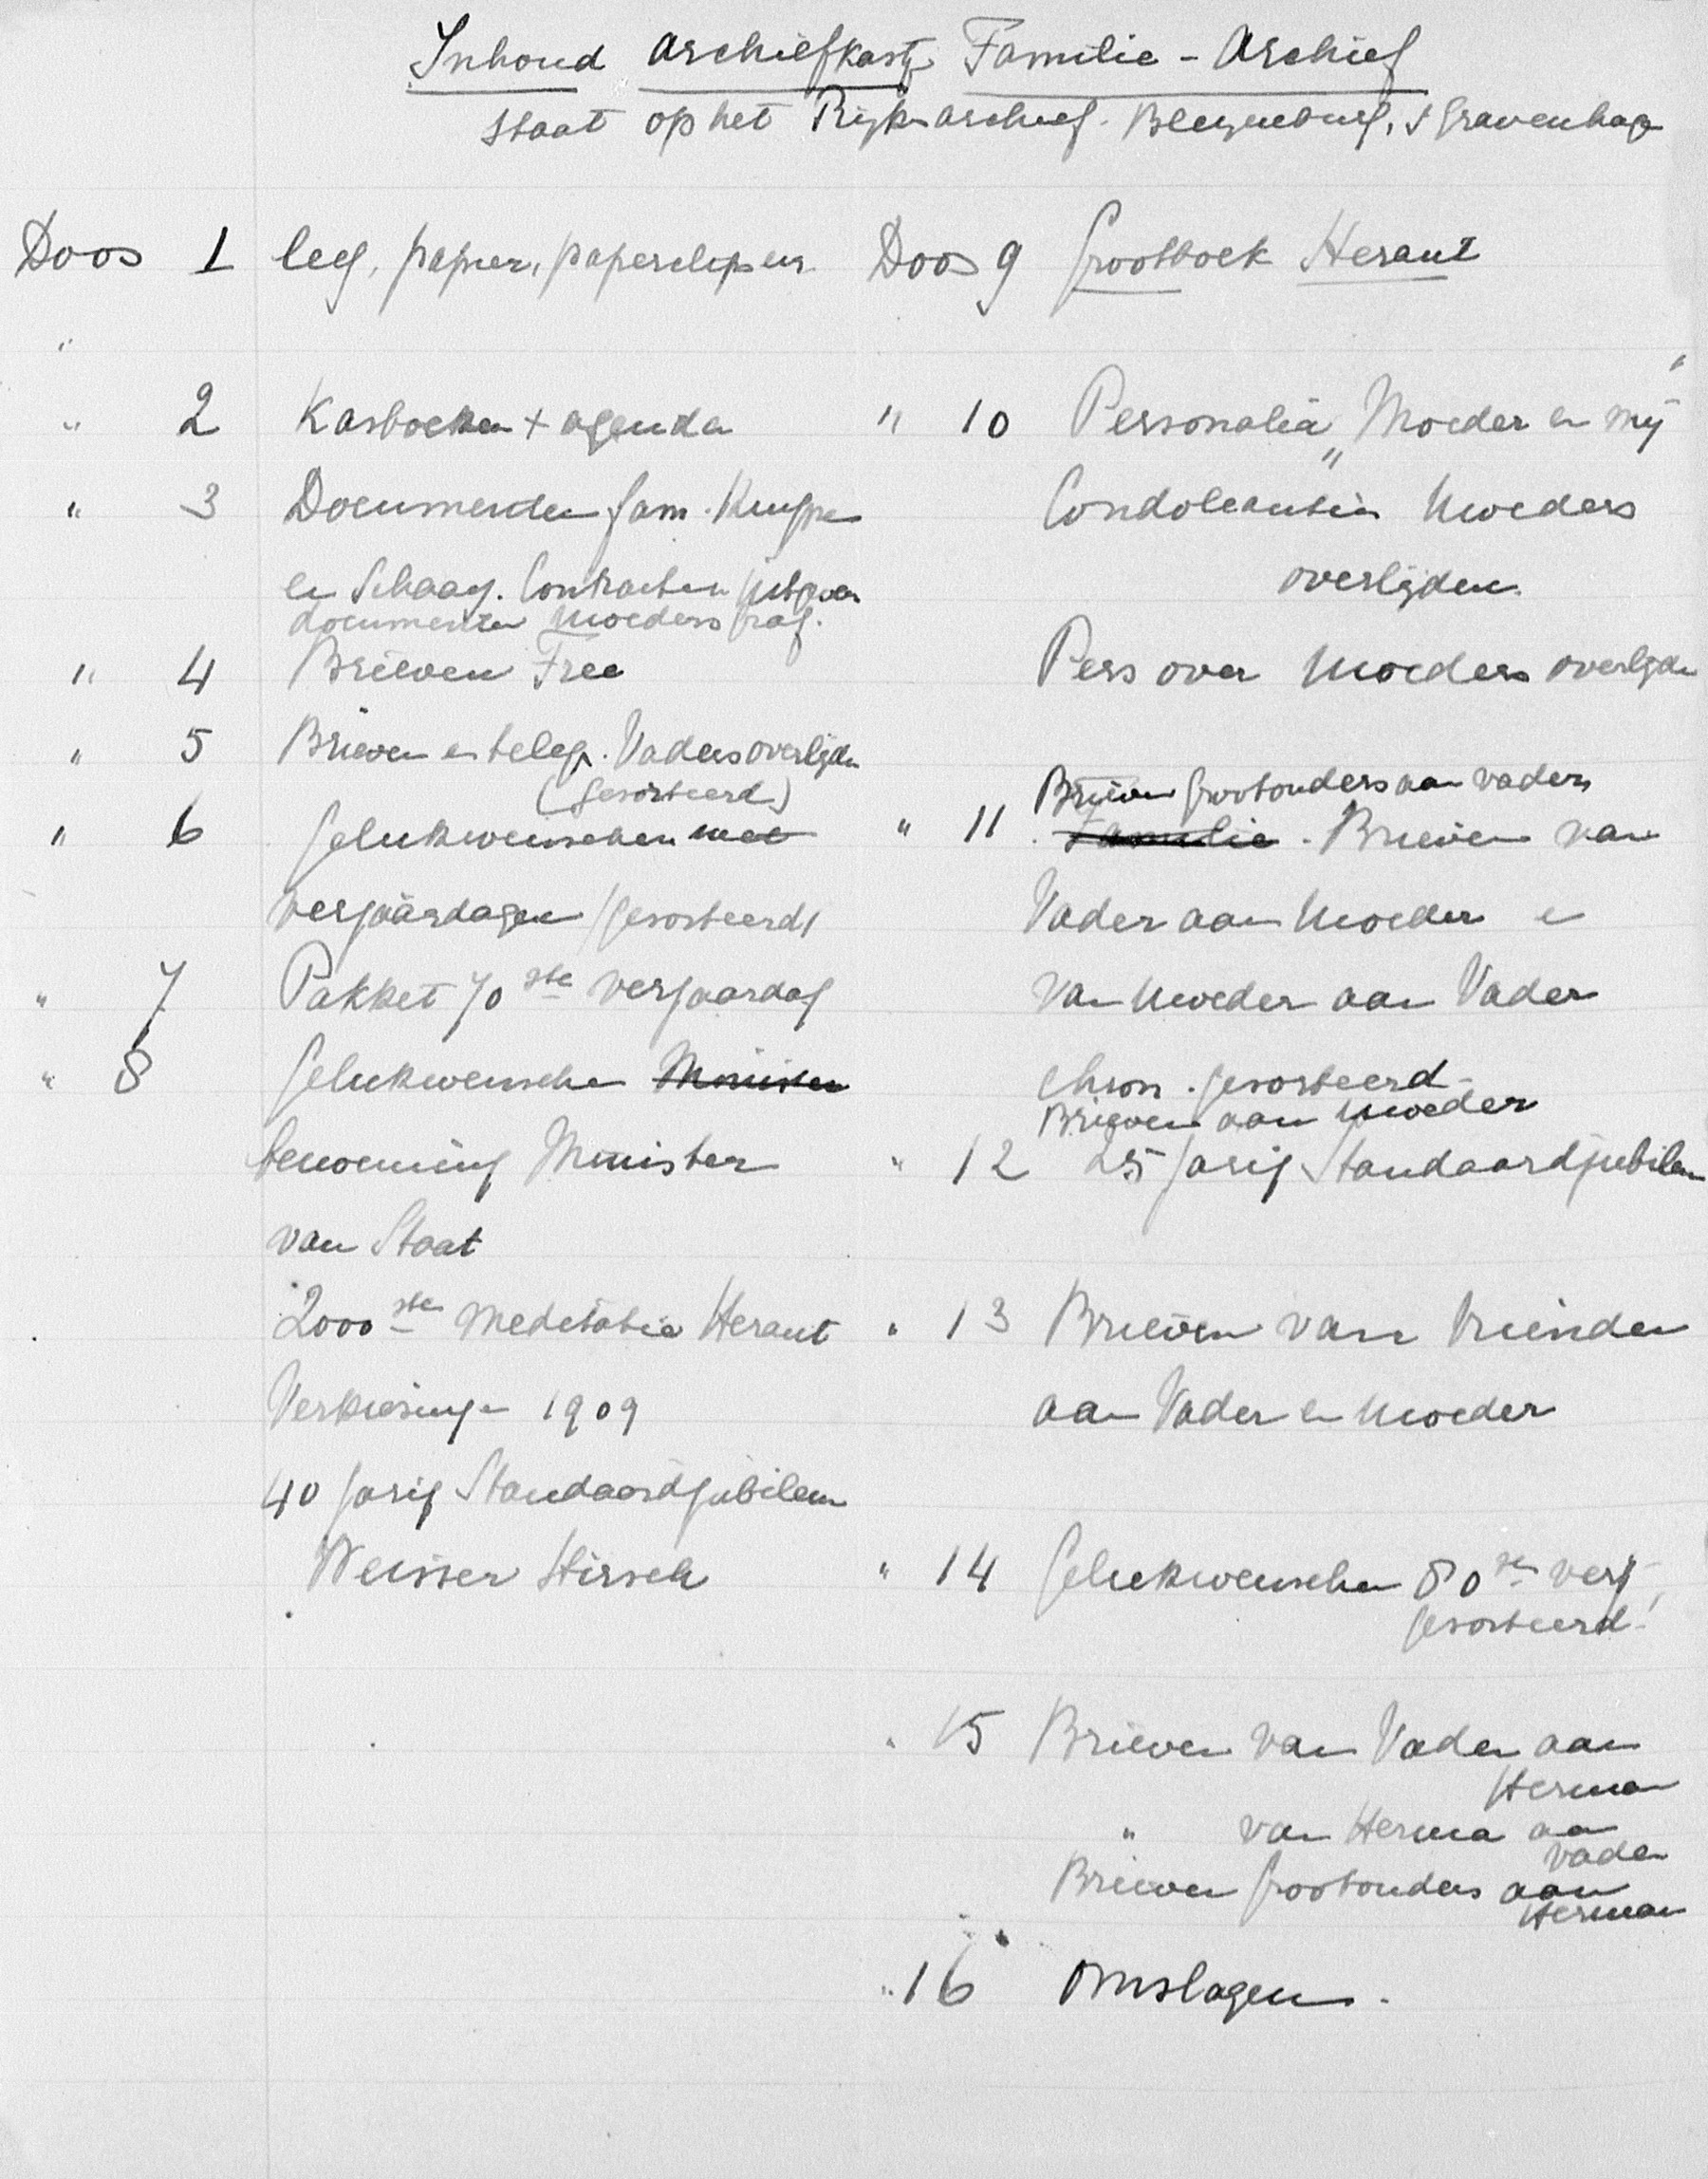 Inhoud archiefkastje Familie - Archief
staat op het Rijksarchief. Bleyenburg, 's Gravenhage
Doos 1 leeg, papier, paperclips enz.
"
" 2 Kasboeken + agenda
" 3 Documenten fam. Kuyper
en Schaay. Contracten Uitgever
documenten Moeders graf.
" 4 Brieven Free
" 5 Brieven en telegr. Vaders overlijden
(gesorteerd)
" 6 Gelukwenschen met
verjaardagen (gesorteerd)
" 7 Pakket 70ste verjaardag
" 8 Gelukwenschen Minister
benoeming Minister
van Staat
2000ste Meditatie Heraut
Verkiezingen 1909
40 jarig Standaardjubileum
Weisser Hirsch
Doos 9 Grootboek Heraut
" 10 Personalia „Moeder en mij"
Condoleantiën Moeders
overlijden.
Pers over Moeders overlijden
Brieven Grootouders aan vaders
" 11 Familie. Brieven van
Vader aan Moeder en
van Moeder aan Vader
chron. gesorteerd -
Brieven aan Moeder
" 12 25 jarig Standaardjubileum
" 13 Brieven van Vrienden
aan Vader en Moeder
" 14 Gelukwenschen 80ste verj.
gesorteerd.
" 15 Brieven van Vader aan
Herman
" van Herman aan
Vader
Brieven Grootouders aan
Herman
" 16 Omslagen.